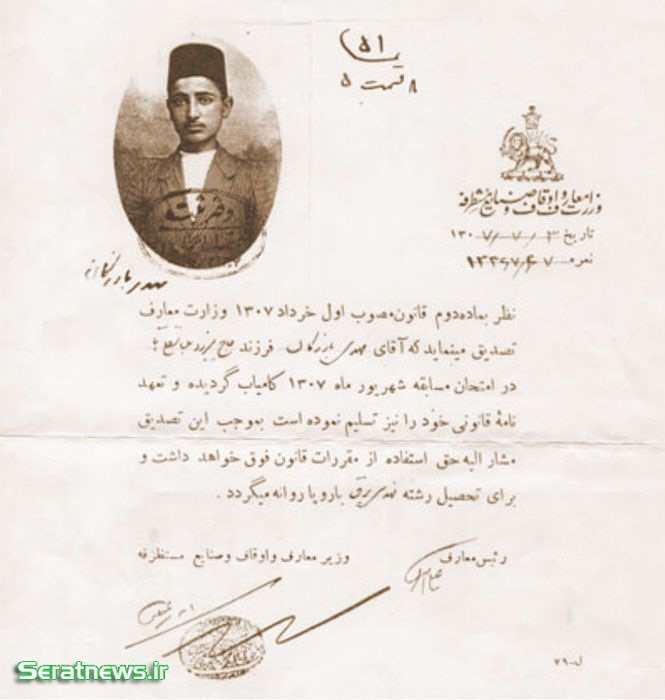 ۵۱
قسمت ۵
وزارت معارف و اوقاف و صنایع مستظرفه
تاریخ ۱۳۰۷/۷/۳
نمره ۱۳۴۶۷/۴۷
نظر بماده دوم قانون مصوب اول خرداد ۱۳۰۷ وزارت معارف
تصدیق مینماید که آقای مهدی بازرگان فرزند حاج
در امتحان مسابقه شهریور ماه ۱۳۰۷ کامیاب گردیده و تعهد
نامهٔ قانونی خود را نیز تسلیم نموده است بموجب این تصدیق
مشار الیه حق استفاده از مقررات قانون فوق خواهد داشت و
برای تحصیل رشته مهندسی برق باروپا روانه میگردد .
رئیس معارف
وزیر معارف و اوقاف و صنایع مستظرفه
ل-۷۹
Seratnews.ir